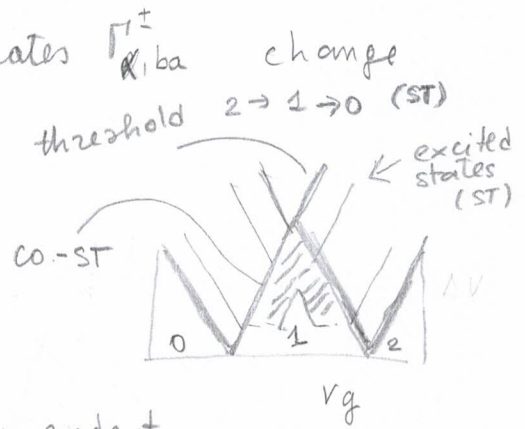 ates Γ±α,ba change
threshold 2→1→0 (ST)
excited
states
(ST)
CO-ST
0 1 2
ΔV
Vg